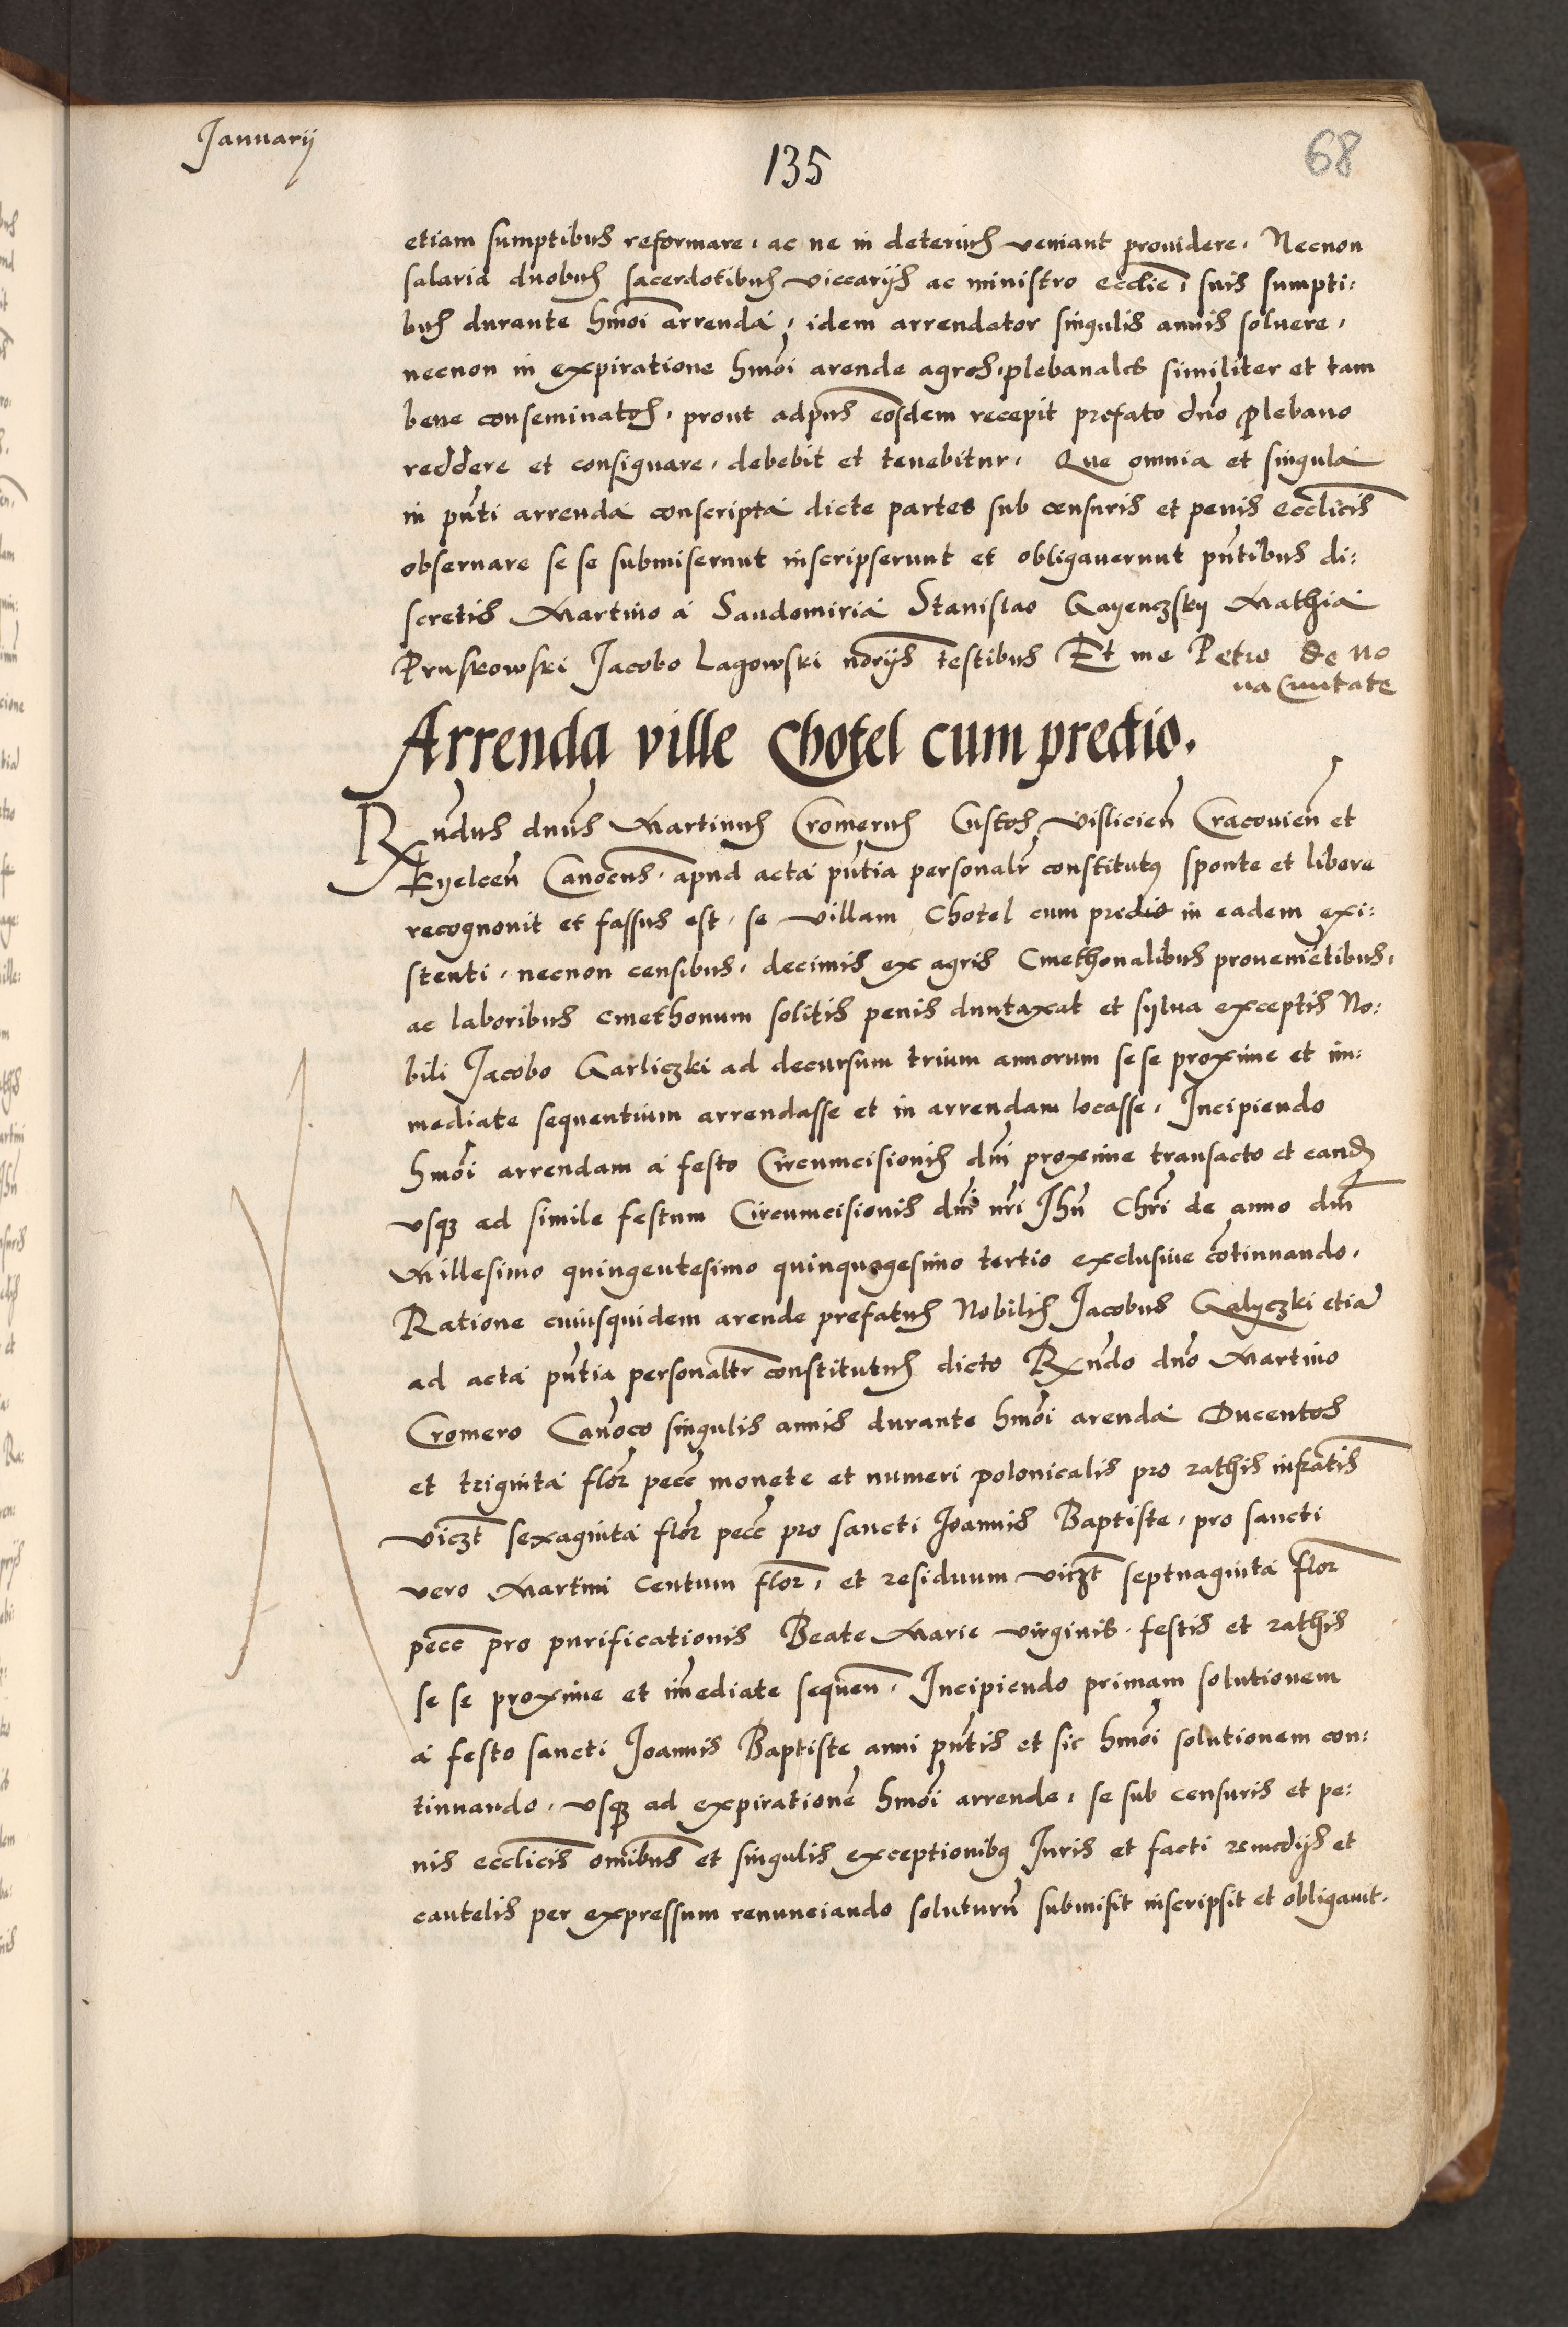 Januarij
135
68
etiam sumptibus reformare, ac ne in deterius veniant prouidere, Necnon
salaria duobus sacerdotibus viccarijs ac ministro ecclie, suis sumpti:
bus durante hmoi arrenda, idem arrendator singulis annis soluere,
necnon in expiratione hmoi arende agros plebanales similiter et tam
bene conseminatos, prout adpns eosdem recepit prefato dno plebano
reddere et consignare, debebit et tenebitur, Que omnia et singula
in pnti arrenda conscripta dicte partes sub censuris et penis ecclicis
obseruare se se submiserunt inscripserunt et obligauerunt pntibus di:
scretis Martino a Sandomiria Stanislao Gayenczsky Mathia
Pruskowski Jacobo Lagowski norijs testibus Et me Petro de No
ua Ciuitate
Arrenda ville Chotel cum predio.
Rndus dnus Martinus Cromerus Custos Vislicien Cracouien et
Kyelcen Canocus, apud acta pntia personalr constitutus sponte et libere
recognouit et fassus est, se villam Chotel cum predio in eadem exi:
stenti, necnon censibus, decimis ex agris Cmethonalibus prouenietibus,
ac laboribus cmethonum solitis penis duntaxat et sylua exceptis No:
bili Jacobo Garliczki ad decursum trium annorum sese proxime et im:
mediate sequentium arrendasse et in arrendam locasse, Incipiendo
hmoi arrendam a festo Circumcisionis dni proxime transacto et eand
vsq ad simile festum Circumcisionis dni nri Jhu Chri de anno dni
Millesimo quingentesimo quinquagesimo tertio exclusiue cotinuando,
Ratione cuiusquidem arende prefatus Nobilis Jacobus Galyczki etia
ad acta pntia personaltr constitutus dicto Rndo dno Martino
Cromero Canoco singulis annis durante hmoi arenda Ducentos
et triginta flor pecc monete et numeri polonicalis pro rathis infratis
viczt sexaginta flor pecc pro sancti Joannis Baptiste, pro sancti
vero Martini Centum flor, et residuum viczt septuaginta flor
pecc pro purificationis Beate Marie virginis festis et rathis
se se proxime et imediate sequen, Incipiendo primam solutionem
a festo sancti Joannis Baptiste anni pntis et sic hmoi solutionem con:
tinuando, vsq ad expiratione hmoi arrende, se sub censuris et pe:
nis ecclicis omibus et singulis exceptionibus Juris et facti remedijs et
cautelis per expressum renunciando soluturu submisit inscripsit et obligauit.